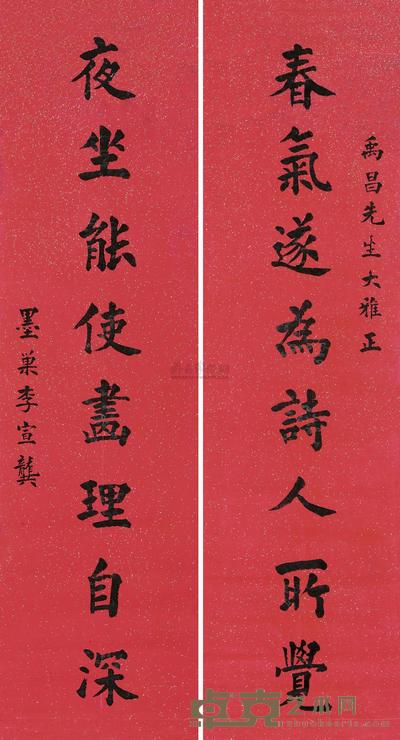 禹昌先生大雅正
春氣遂為詩人所覺
夜坐能使畵理自深
墨巢李宣龔